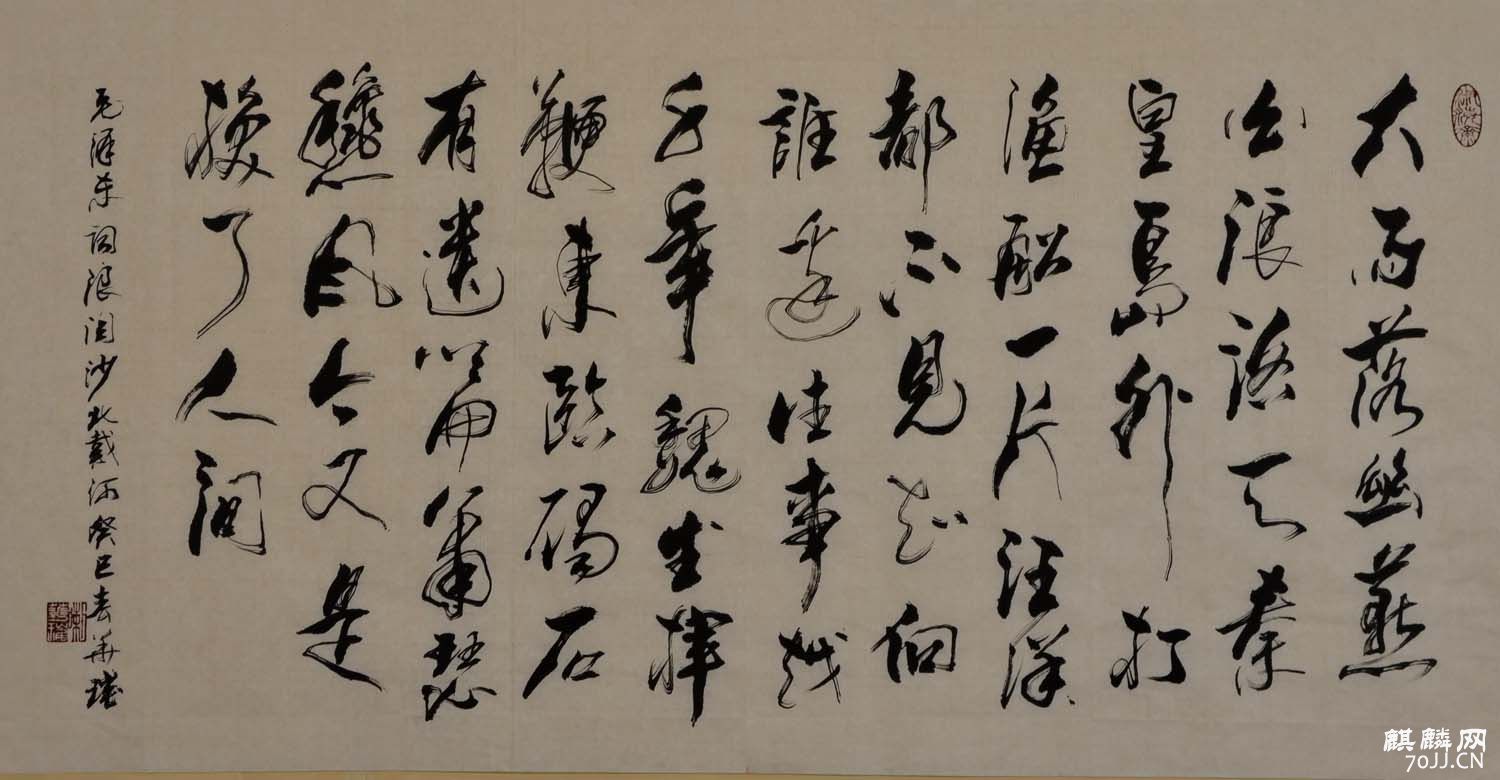 大雨落幽燕
白浪滔天秦
皇島外打
漁船一片汪洋
都不見知向
誰邊往事越
千年魏武揮
鞭東臨碣石
有遺篇蕭瑟
秋風今又是
換了人间
毛泽东词浪淘沙北戴河癸巳春華
麒麟网
70JJ.CN